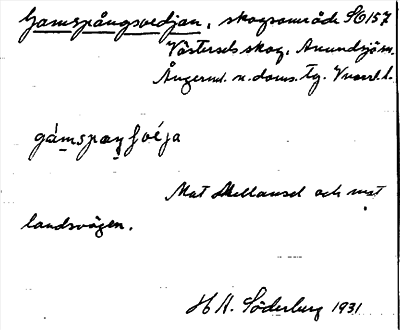 Gamspångsvedjan, skogsområde SO157
Västersels skog, Anundsjö sn.
Ångerml. n. doms. tg. Vnorrl. l.
gámspaŋsvéja
Mot Mellansel och mot
landsvägen.
H A. Söderberg 1931